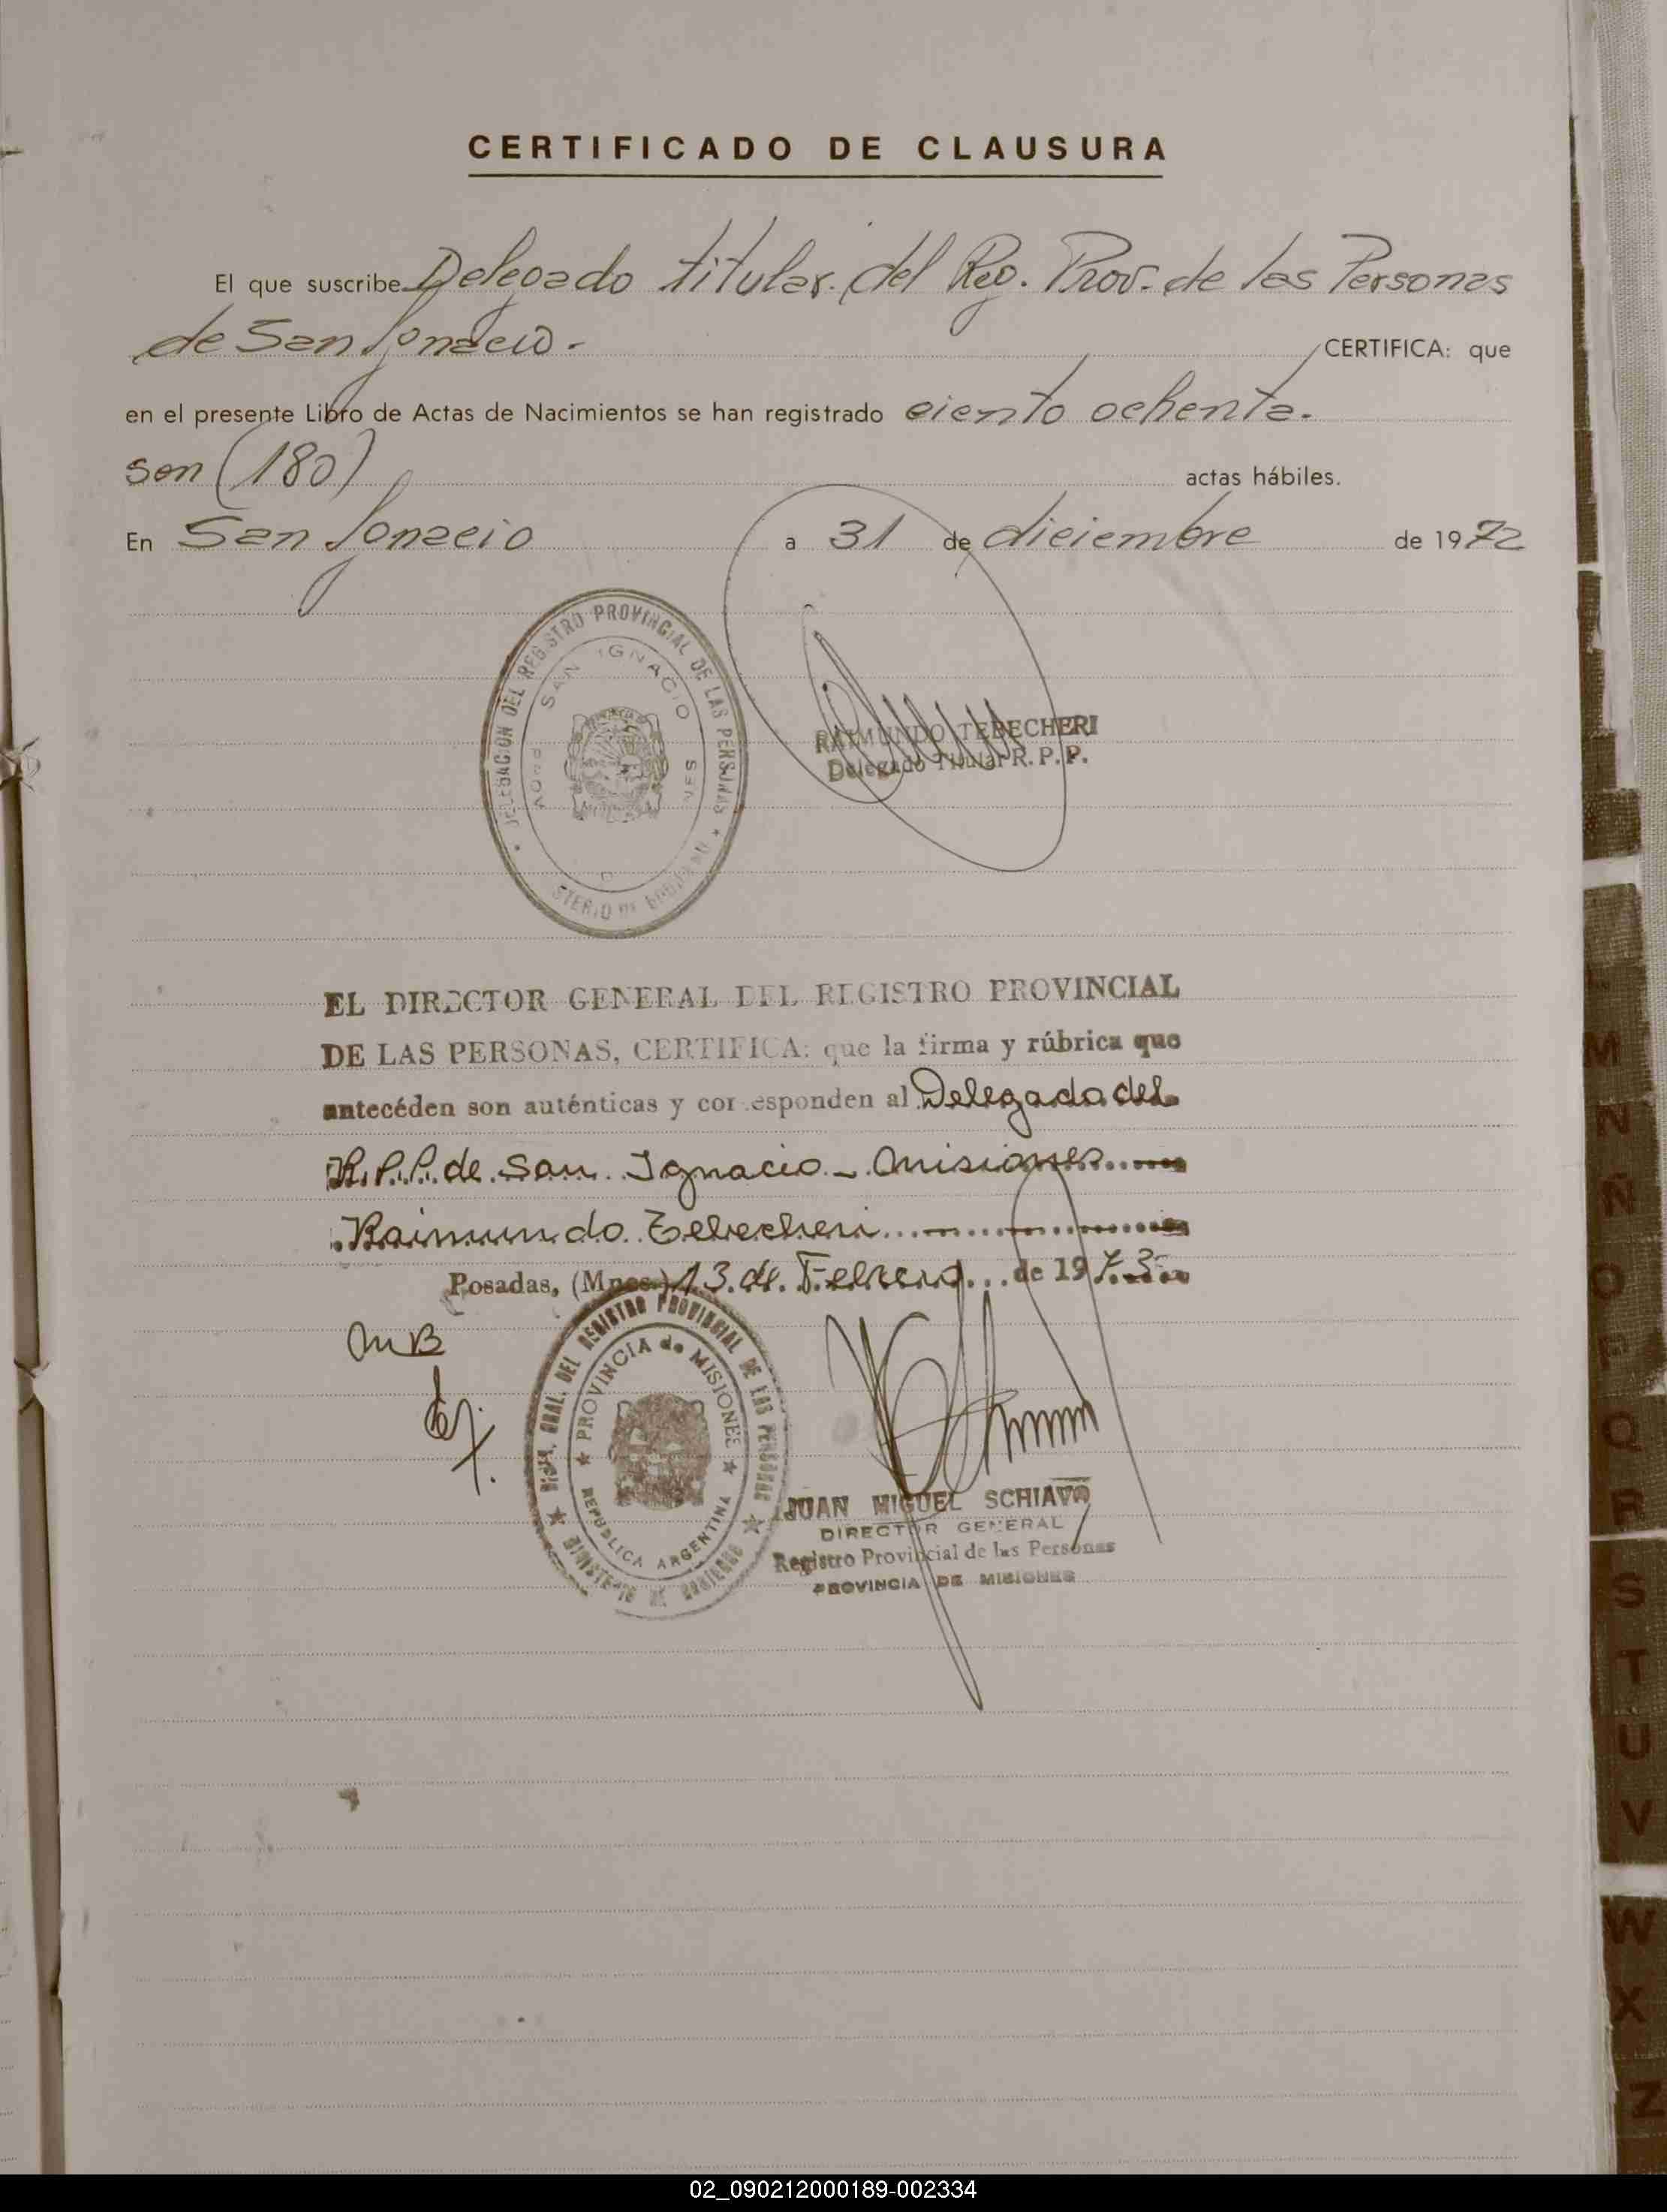 CERTIFICADO DE CLAUSURA
El que suscribe Delegado titular. del Reg. Prov. de las Personas
de San Ignacio. CERTIFICA: que
en el presente Libro de Actas de Nacimientos se han registrado ciento ochenta.
son (180) actas hábiles.
En San Ignacio a 31 de diciembre de 1972
DELEGACION DEL REGISTRO PROVINCIAL DE LAS PERSONAS
SAN IGNACIO
RAIMUNDO TEBECHERI
Delegado Titular R. P. P.
EL DIRECTOR GENERAL DEL REGISTRO PROVINCIAL
DE LAS PERSONAS, CERTIFICA: que la firma y rúbrica que
antecéden son auténticas y corresponden al Delegado del
R.P.P. de San Ignacio - Misiones
Raimundo Tebecheri
Posadas, (Mnes.) 13 de Febrero de 1973
MB
DIR. GRAL. DEL REGISTRO PROVINCIAL DE LAS PERSONAS
PROVINCIA de MISIONES
REPUBLICA ARGENTINA
MINISTERIO DE GOBIERNO
JUAN MIGUEL SCHIAVO
DIRECTOR GENERAL
Registro Provincial de las Personas
PROVINCIA DE MISIONES
M
N
Ñ
O
P
Q
R
S
T
U
V
W
X
Z
02_090212000189-002334